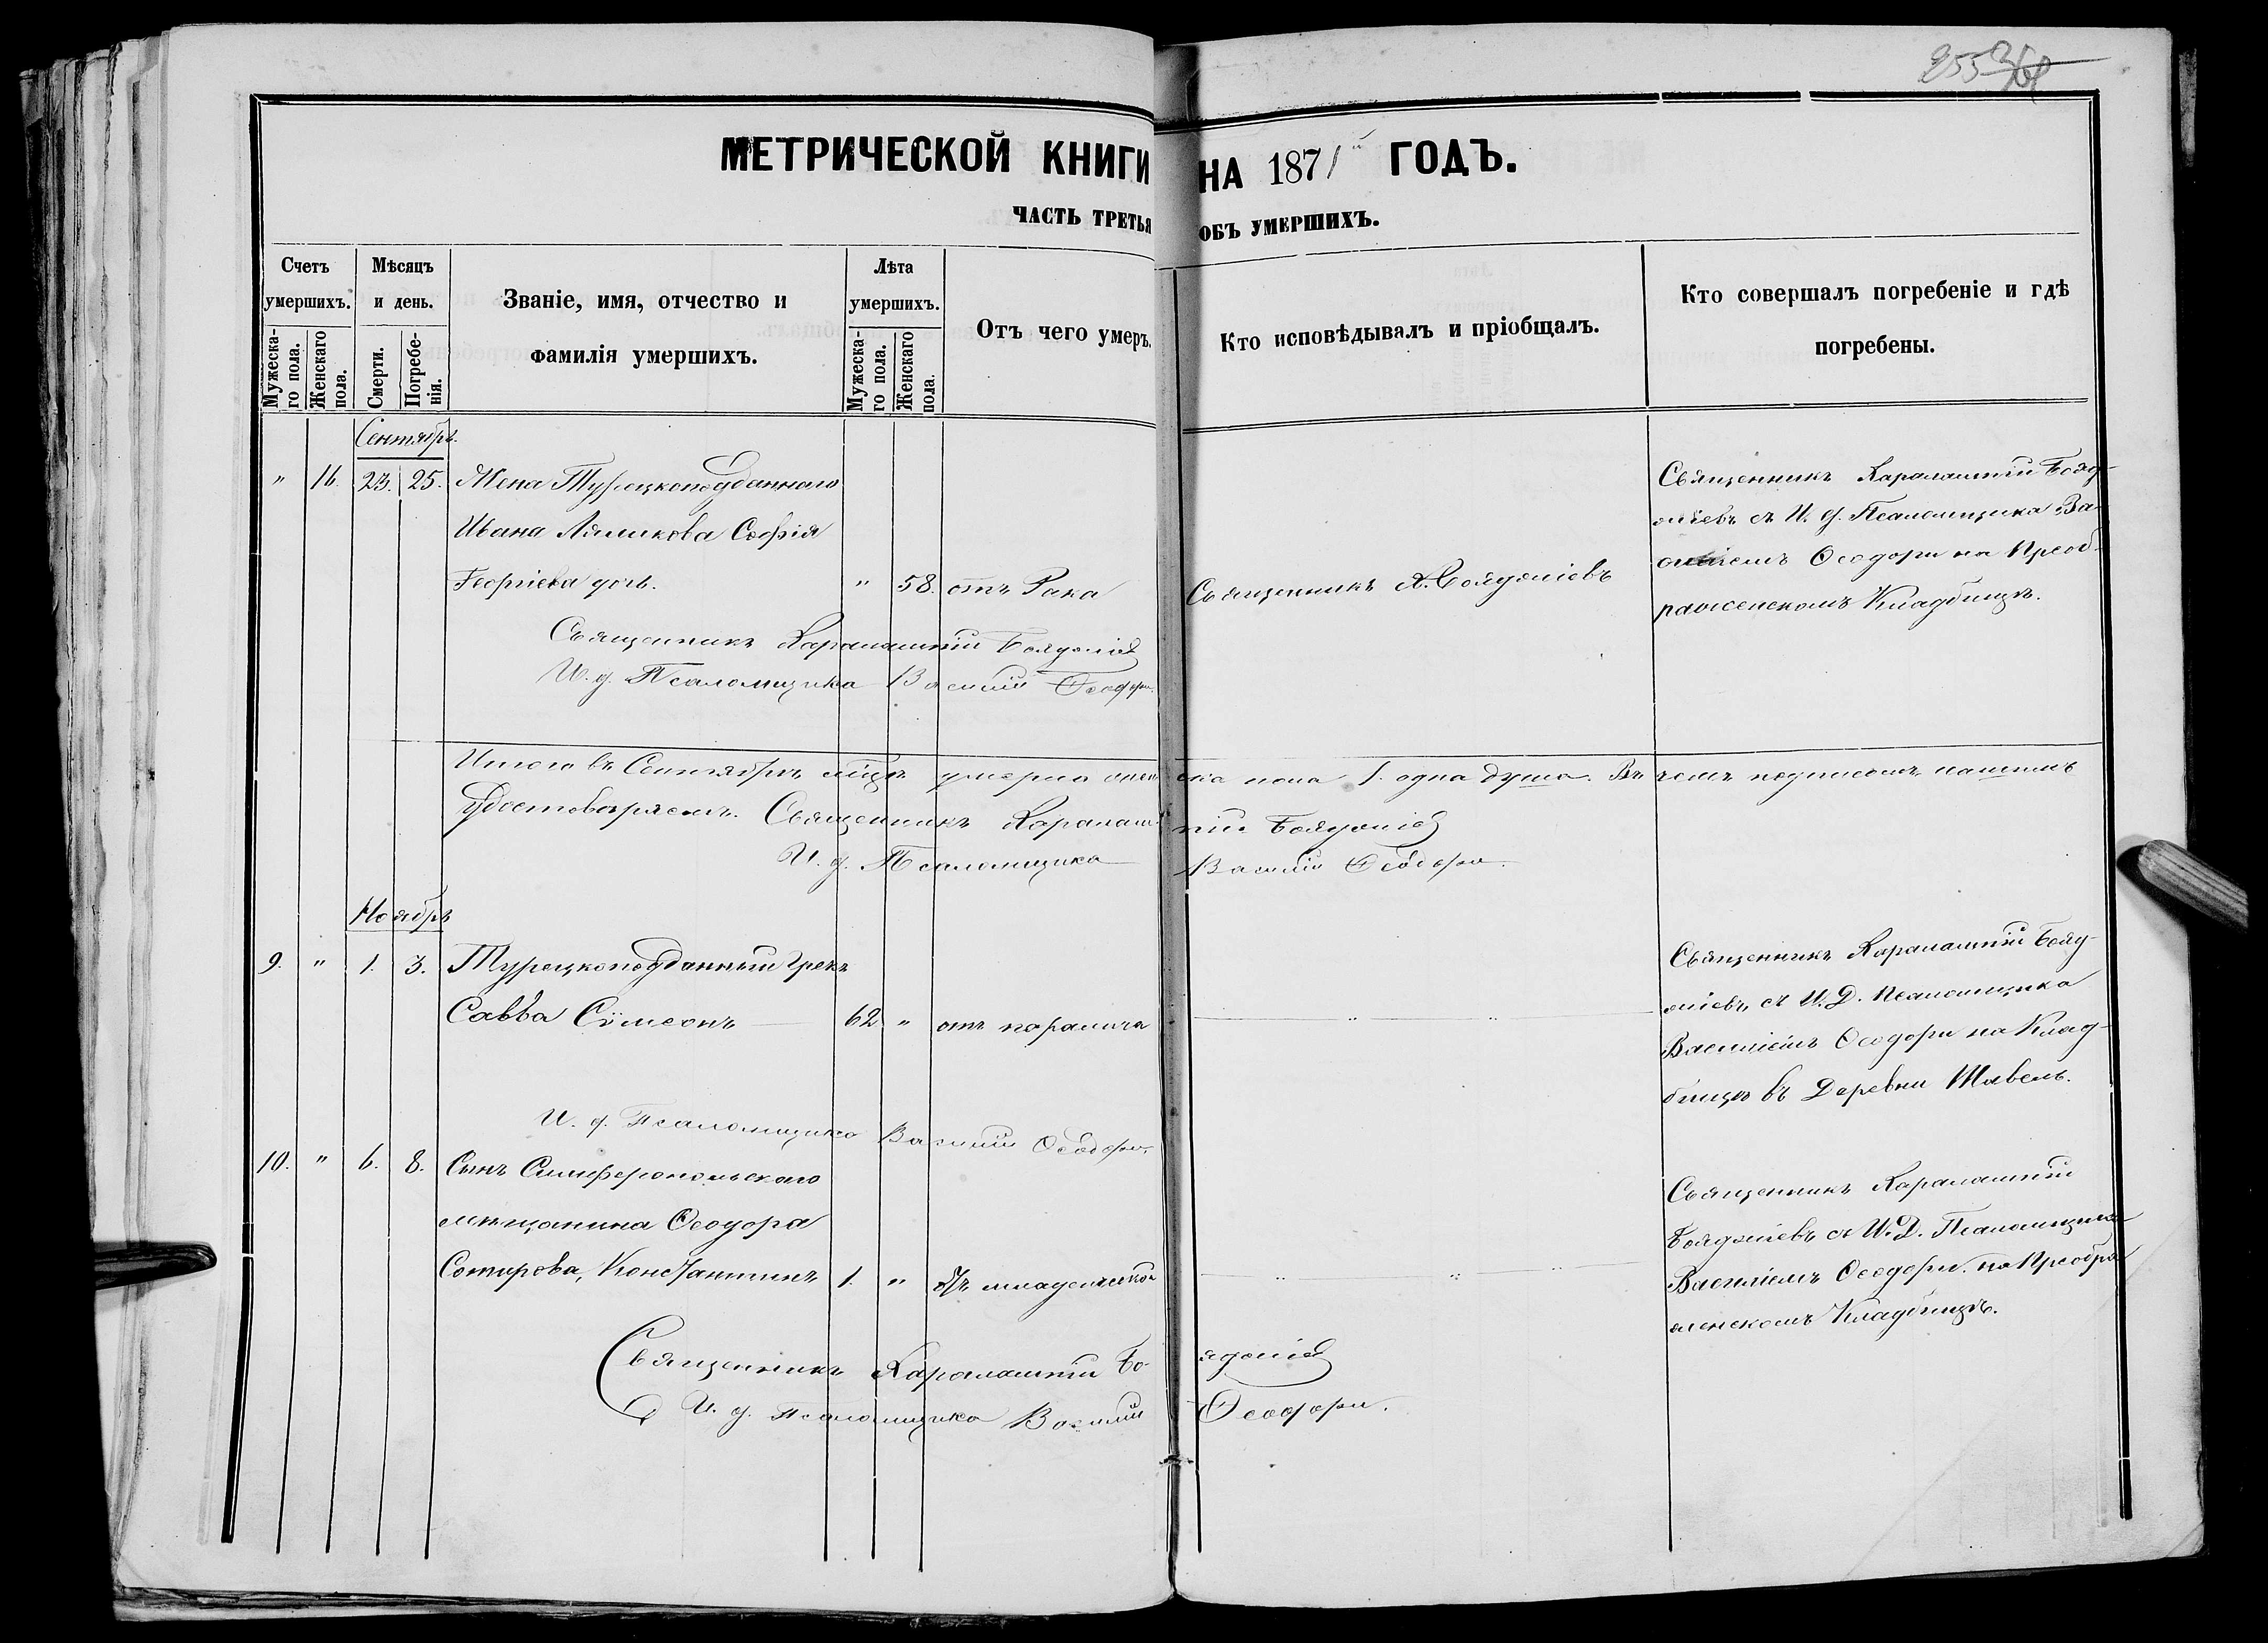 255
МЕТРИЧЕСКОЙ КНИГИ НА 1871й ГОДЪ.
ЧАСТЬ ТРЕТЬЯ ОБЪ УМЕРШИХЪ.
Счетъ умершихъ.
Мужеска-го пола.
Женскаго пола.
Мѣсяцъ и день.
Смерти.
Погребе-нія.
Званіе, имя, отчество и
фамилія умершихъ.
Лѣта умершихъ.
Мужеска-го пола.
Женскаго пола.
Отъ чего умеръ.
Кто исповѣдывалъ и пріобщалъ.
Кто совершалъ погребеніе и гдѣ
погребены.
Сентябрь.
" 16. 23. 25. Жена Турецкоподданнаго
Ивана Лямикова Софія
Георгіева дочь. " 58. отъ Рака
Священникъ Х. Бояджіевъ
Священникъ Харалампій Бояд-
жіевъ съ И. д. Псаломщика Ва-
силіемъ Ѳеодори на Преоб-
раженскомъ Кладбищѣ.
Священникъ Харалампій Бояджіев
И. д. Псаломщика Василій Ѳеодори.
Итого въ Сентябрѣ мѣцѣ умерло женска пола 1. одна душа. Въ чемъ подписомъ нашимъ
удостовѣряемъ. Священникъ Харалампій Бояджіев
И. д. Псаломщика Василій Ѳеодори.
Ноябрь
9. " 1. 3. Турецкоподданный Грекъ
Савва Симеонъ 62 " отъ паралича
Священникъ Харалампій Бояд-
жіевъ съ И. Д. Псаломщика
Василіемъ Ѳеодори на Клад-
бищѣ въ Деревни
И. д. Псаломщика Василій Ѳеодори.
10. " 6. 8. Сынъ Симферопольскаго
мѣщанина Ѳеодора
Сотирова, Константинъ 1. " отъ младенческой
Священникъ Харалампій
Бояджіевъ съ И. Д. Псаломщика
Василіемъ Ѳеодори. на Преобра
женскомъ Кладбищѣ.
Священникъ Харалампій Бояджіев
И. д. Псаломщика Василій Ѳеодори.